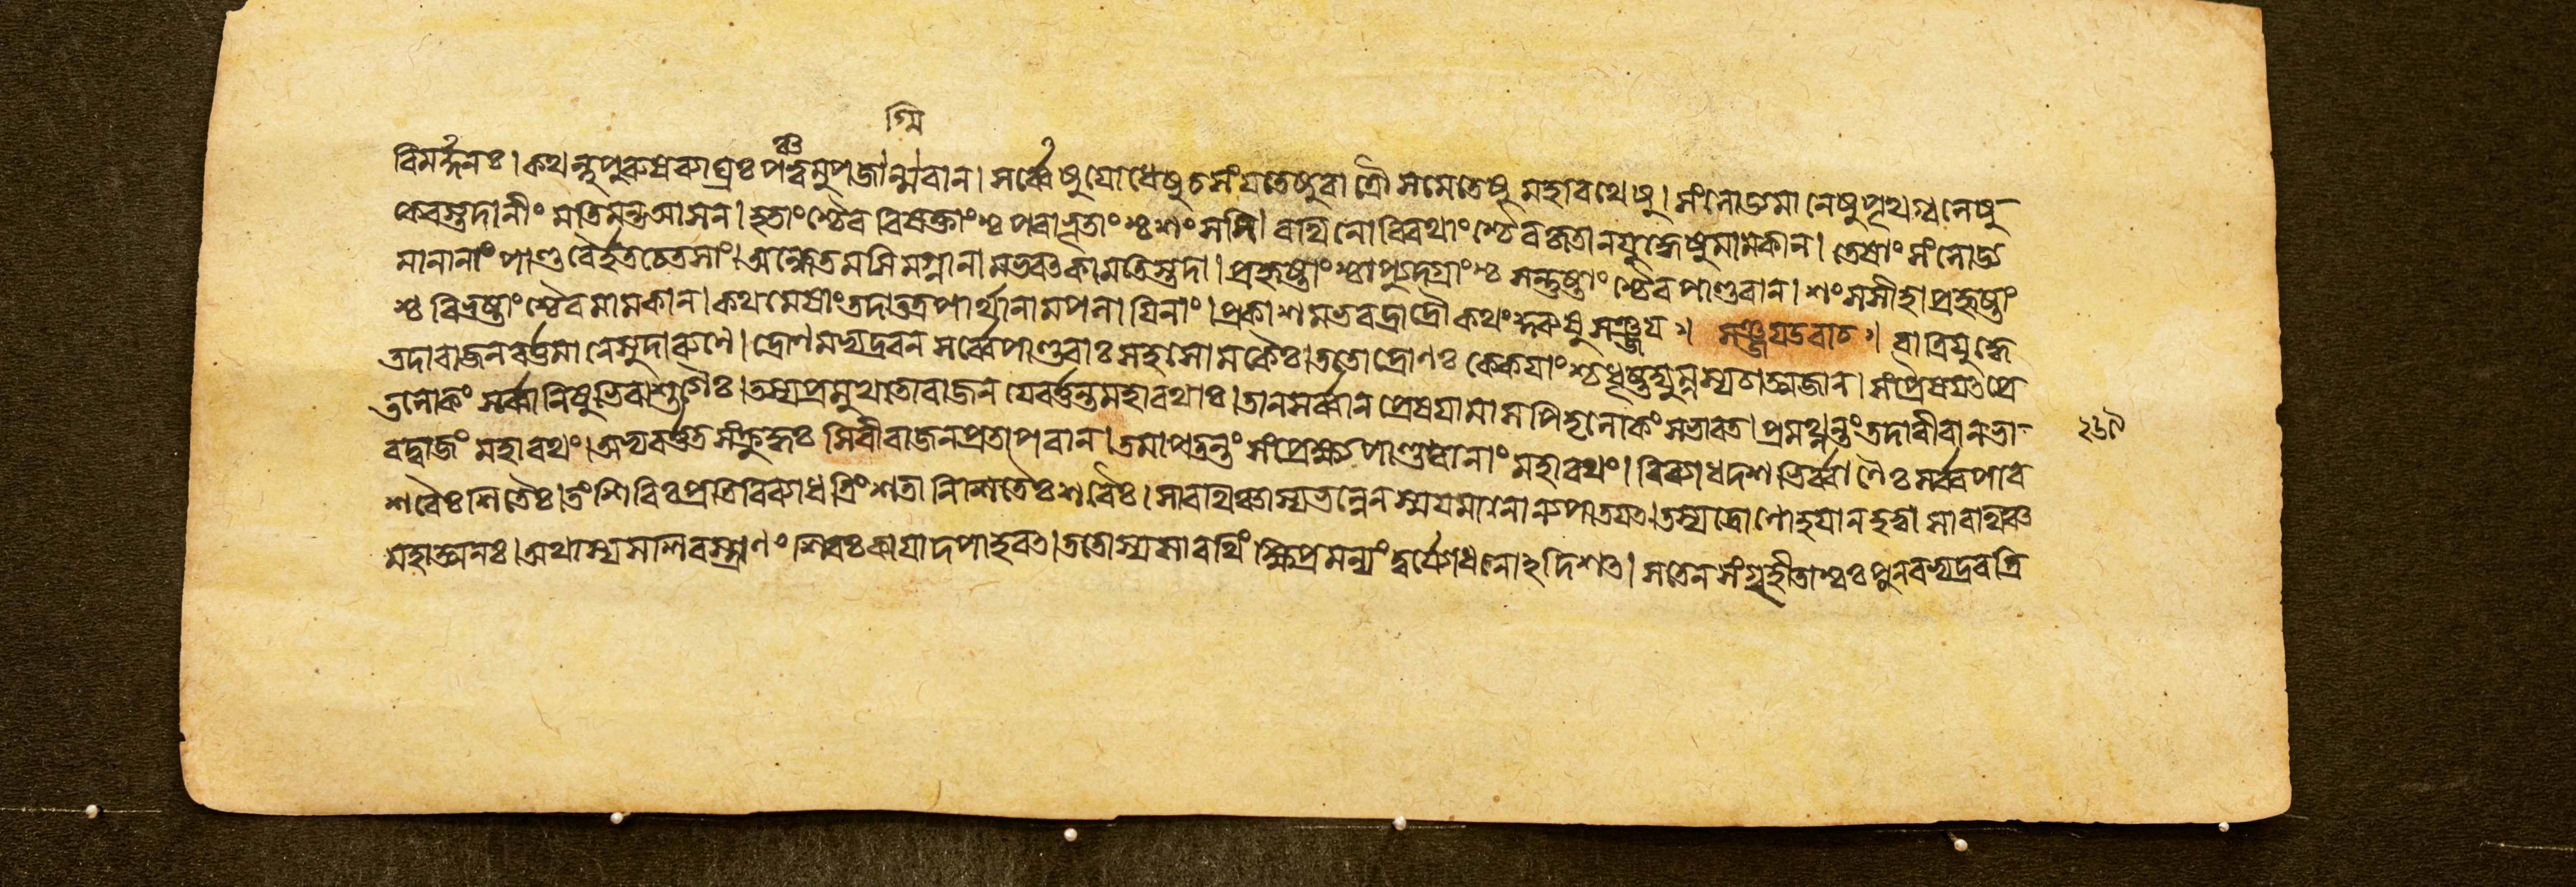 গ্মি
ঞ্চ
বিমর্দ্দনঃ। কথন্নুপুরুষব্যাঘ্রঃ পঞ্চত্বমুপজান্মবান। সর্ব্বেষু যোধেষু চ সংযতেষু রাত্রৌ সমেতেষু মহারথেষু। সংলোড্যমানেষু পৃথগ্বলেষু
কেবস্তদানীং মতিমন্ত্রআসন। হতাংশ্চৈব বিষক্তাংশ্চ পরাভূতাংশ্চ শংসসি। রথিনো বিরথাংশ্চৈব কৃতানযুদ্ধেষু মামকান। তেষাং সংলোড্য
মানানাং পাণ্ডবৈর্হতচেতসাং। অন্ধেতমসি মগ্নানামভবৎকামতিস্তদা। প্রহৃষ্টাংশ্চাপ্যুদগ্রাংশ্চ সন্তুষ্টাংশ্চৈব পাণ্ডবান। শংসসীহাপ্রহৃষ্টাং
শ্চ বিভ্রষ্টাংশ্চৈব মামকান। কথমেষাং তদা তত্র পার্থানামপলায়িনাং। প্রকাশমভবদ্রাত্রৌ কথং কুরুষু সঞ্জয়ঃ। সঞ্জয়উবাচঃ। রাত্রিযুদ্ধে
তদা রাজন বর্ত্তমানে সুদারুণে। দ্রোণমভ্যদ্রবন সর্ব্বে পাণ্ডবাঃ সহসোমকৈঃ। ততো দ্রোণঃ কেকয়াংশ্চ ধৃষ্টদ্যুম্নস্যচাত্মজান। সংপ্রৈষয়ৎপ্রে
তলোকং সর্ব্বানিষুভিরাশুগৈঃ। তস্যপ্রমুখতো রাজন যেবর্ত্তন্ত মহারথাঃ। তানসর্ব্বান প্রেষয়ামাস পিতৃলোকং সভারত। প্রমথ্নন্তং তদা বীরানভা-
রদ্বাজং মহারথং। অভ্যবর্ত্তত সংক্রুদ্ধঃ সিবীরাজনপ্রতাপবান। তমাপতন্তং সংপ্রেক্ষ্য পাণ্ডবানাং মহারথং। বিব্যাধ দশভির্ব্বাণৈঃ সর্ব্বপারে
শবৈঃশিতৈঃ। তং শিবিঃ প্রতিবিব্যাধ ত্রিংশতা নিশিতৈঃ শরৈঃ। সারথিঞ্চাস্যভল্লেন স্ময়মানো ন্যপাতয়ৎ। তস্যদ্রোণো হয়ানহত্বা সারথিঞ্চ
মহাত্মনঃ। অথাস্য সশিরস্ত্রাণং শিরঃ কায়াদপাহরৎ। ততোস্য সারথিং ক্ষিপ্রমন্যং দুর্যোধনোঽদিশৎ। সতেন সংগৃহীতাশ্বঃ পুনরভ্যদ্রবদ্রি
২৬৭